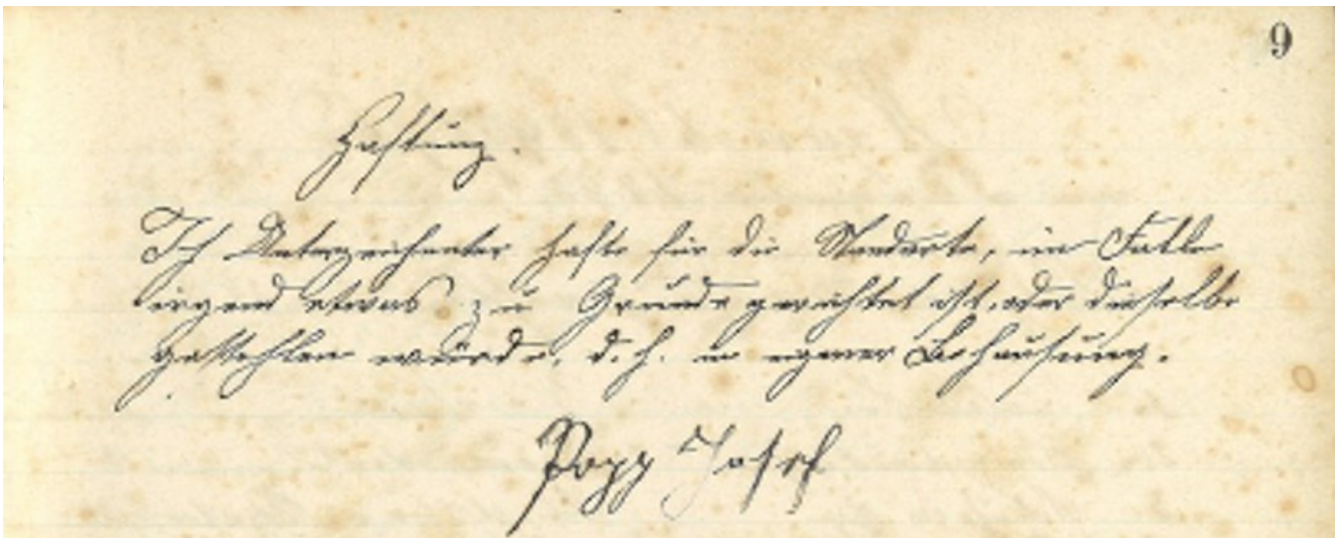 9
Haftung.
Ich Unterzeichneter hafte für die Standarte, im Falle
irgend etwas zu Grunde gerichtet ist, oder dieselbe
gestohlen würde, d. h. in eigner Behausung.
Popp Josef